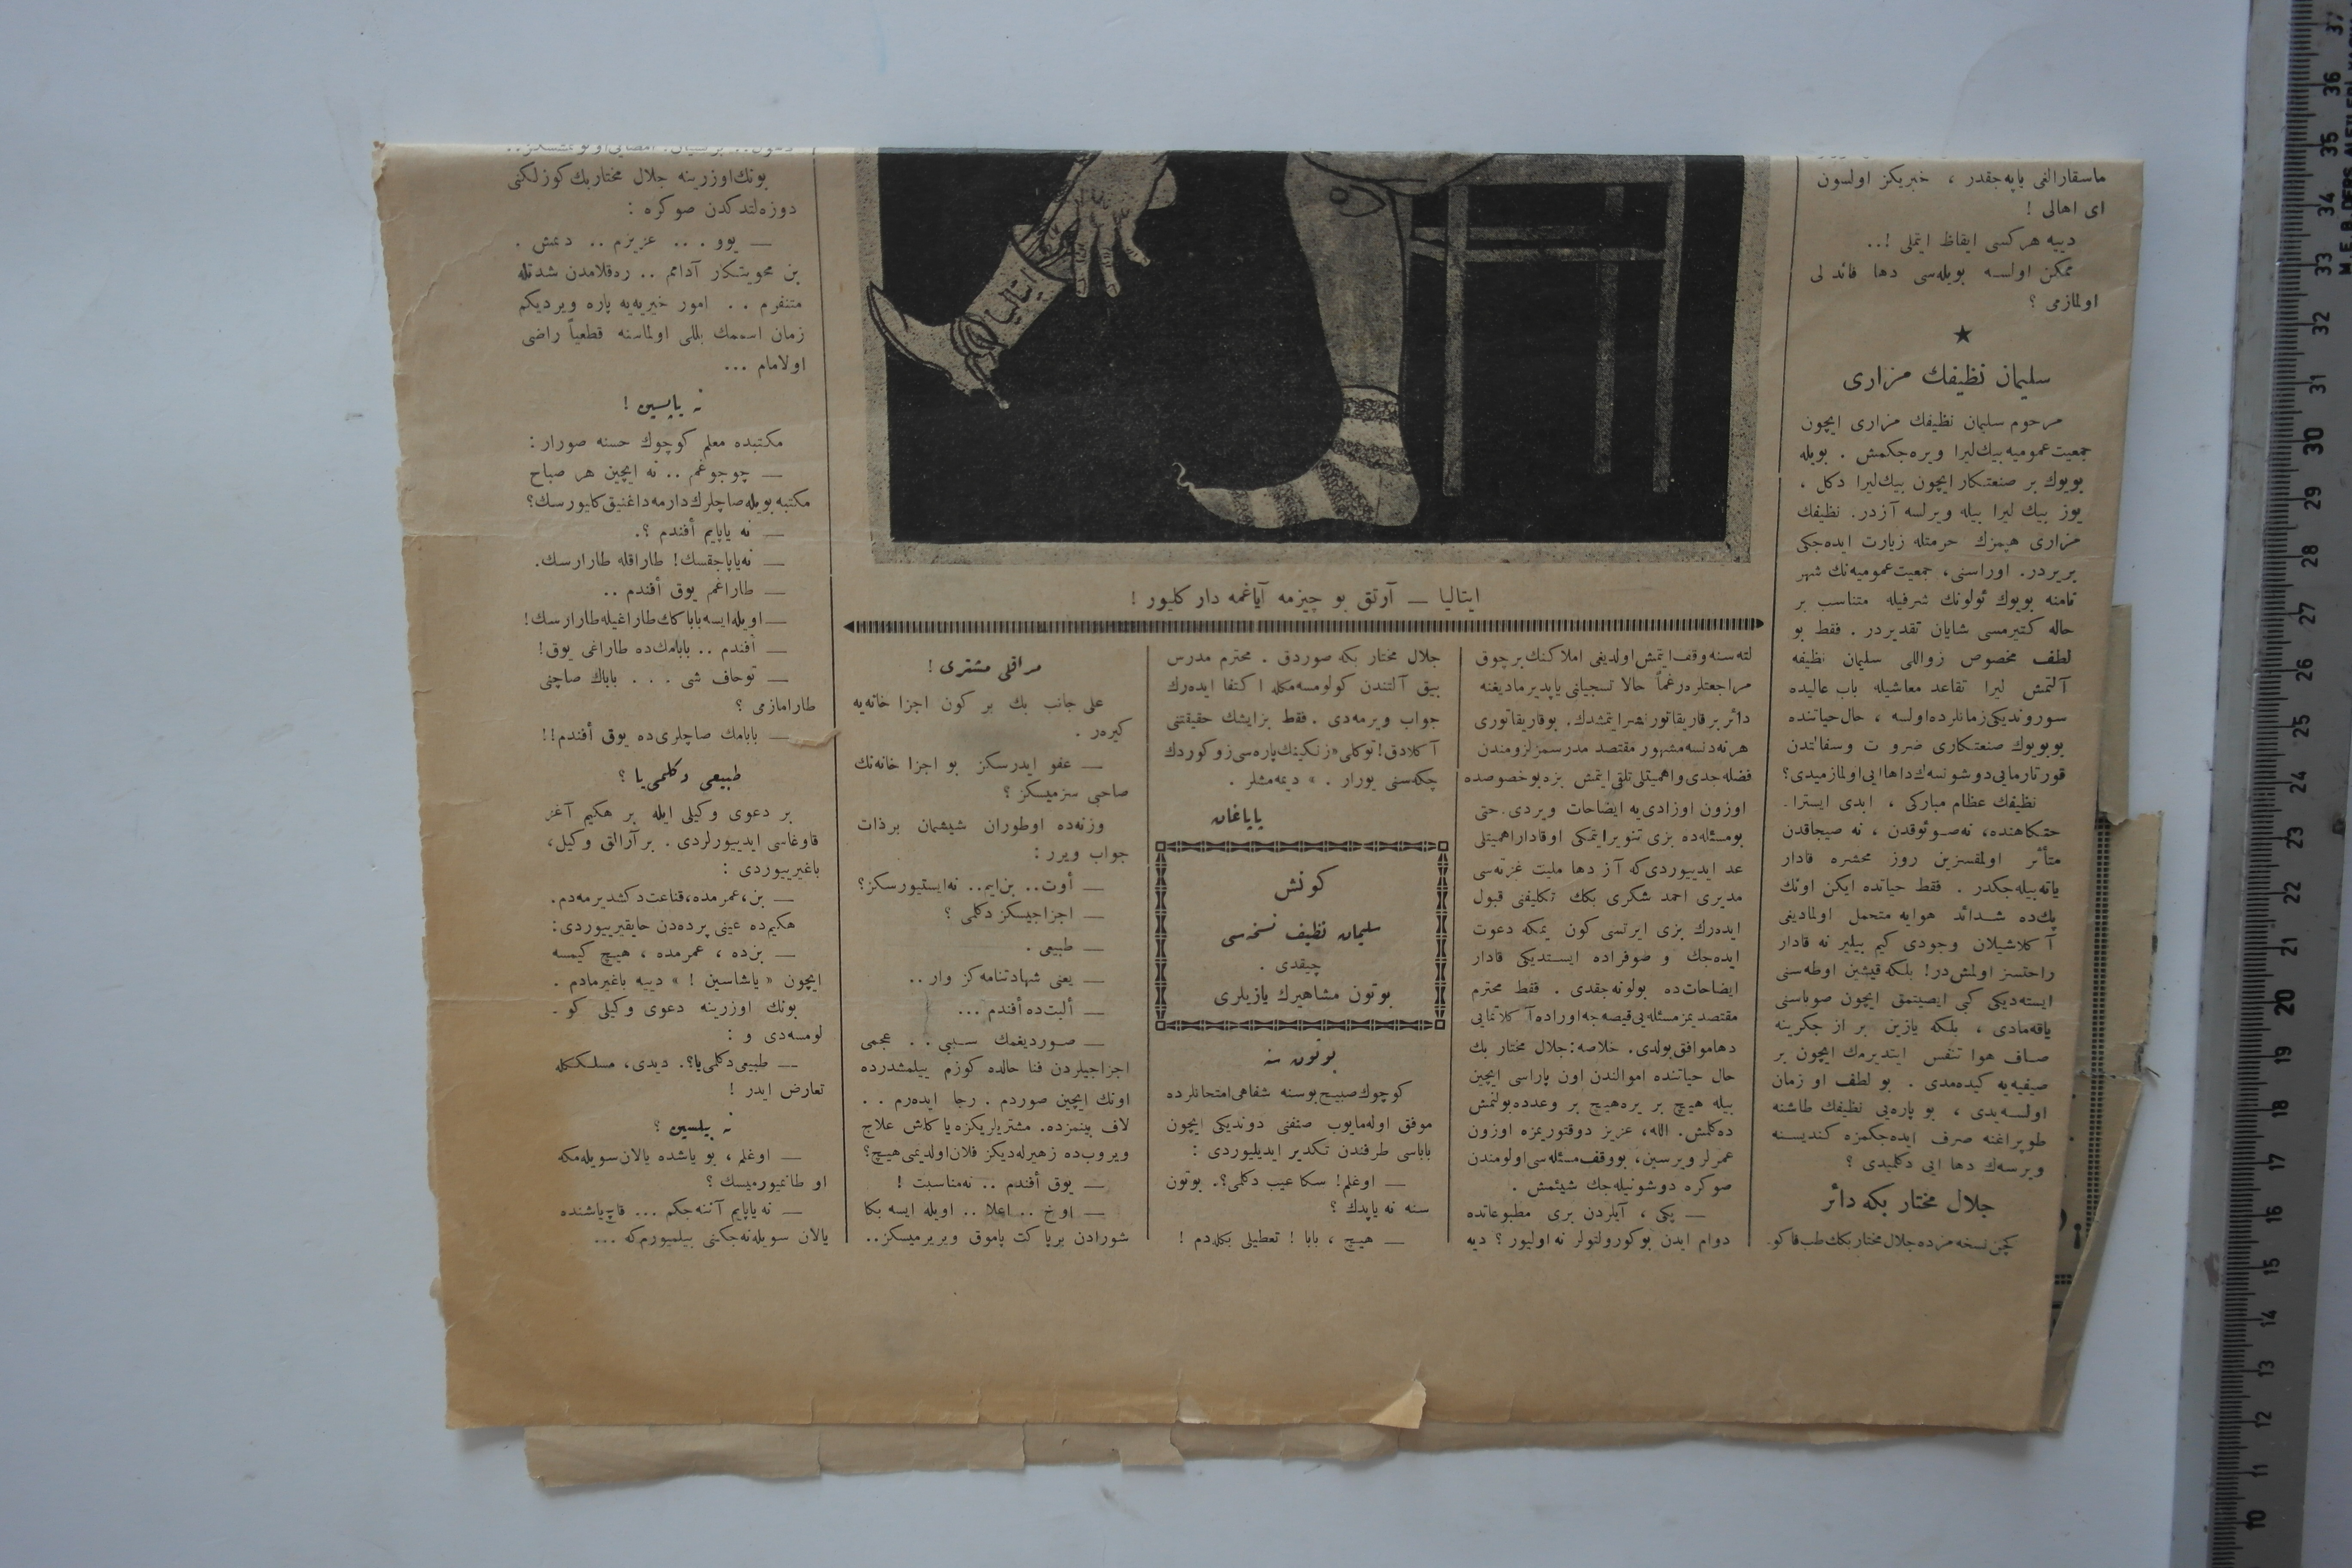 ماسقارالغی یاپه‌جقدر ، خبریکز اولسون
ای اهالی !
دییه هرکسی ایقاظ ایتملی !..
ممکن اولسه بویله‌سی دها فائد لی
اولمازمی ؟
★
سلیمان نظیفك مزاری
مرحوم سلیمان نظیفك مزاری ایچون
جمعیت عمومیه بیك لیرا ویره جکمش . بویله
بویوك بر صنعتکار ایچون بیك لیرا دکل ،
یوز بیك لیرا بیله ویرلسه آزدر. نظیفك
مزاری هپمزك حرمتله زیارت ایده‌جکی
بریردر. اوراسنی، جمعیت عمومیه‌نك شهر
نامنه بویوك ئولونك شرفیله متناسب بر
حاله کتیرمسی شایان تقدیردر . فقط بو
لطف مخصوص زواللی سلیمان نظیفه
آلتمش لیرا تقاعد معاشیله باب عالیده
سوروندیکی زمانلرده اولسه ، حال حیاتنده
بوبویوك صنعتکاری ضرو ت وسفا‌لتدن
قورتارمایی دوشونسه‌ك داهاایی اولمازمیدی؟
نظیفك عظام مبارکی ، ابدی ایسترا۔
حتکاهنده، نه صوئوقدن ، نه صیجاقدن
متأثر اولمقسزین روز محشره قادار
یاته‌بیله‌جکدر . فقط حیاتده ایکن اونك
پك‌ده شدائد هوایه متحمل اولمادیغی
آ کلاشیلان وجودی کیم بیلیر نه قادار
راحتسز اولمش‌در! بلکه قیشین اوطه‌سنی
ایسته‌دیکی کبی ایصیتمق ایچون صوباسنی
یاقه‌مادی ، بلکه یازین بر از جکرینه
صاف هوا تنفس ایتدیرمك ایچون بر
صیفیه‌یه کیده‌مدی . بو لطف او زمان
اولسه‌یدی ، بو پاره‌یی نظیفك طاشنه
طوپراغنه صرف ایده‌جکمزه کندیسنه
ویرسه‌ك دها ایی دکلمیدی ؟
جلال مختار بکه دائر
کچن نسخه مزده جلال مختار بکك طب فاکو۔
ایتالیا
ایتالیا — آرتق بو چیزمه آیاغمه دار کلیور !
لته سنه وقف ایتمش اولدیغی املاکنك برچوق
مراجعتلره رغماً حالا تسجیلنی یاپدیرمادیغنه
دائر بر قاریقاتور نشرایتمشدك. بوقاریقاتوری
هر نه‌دنسه مشهور مقتصد مدرسمز لزومندن
فضله جدی واهمیتلی تلقی ایتمش بزه بوخصوصده
اوزون اوزادی‌یه ایضاحات ویردی. حتی
بومسئله‌ده بزی تنویر ایتمکی اوقادار اهمیتلی
عد ایدییوردی‌که آز دها ملیت غزته‌سی
مدیری احمد شکری بکك تکلیفنی قبول
ایده‌رك بزی ایرتسی کون یمکه دعوت
ایده‌جك و صوفراده ایستدیکی قادار
ایضاحات‌ده بولونه‌جقدی . فقط محترم
مقتصدیمز مسئله‌یی قیصه جه اوراده آ کلاتمایی
دهاموافق بولدی. خلاصه : جلال مختار بك
حال حیاتنده اموالندن اون پاراسی ایچین
بیله هیچ بر یره هیچ بر وعدده بولنمش
ده‌کلمش. الله، عزیز دوقتوریمزه اوزون
عمرلر ویرسین، بووقف مسئله‌سی اولومندن
صوکره دوشونیله‌جك شیئمش .
— پکی ، آیلردن بری مطبوعاتده
دوام ایدن بوکورولتولر نه اولیور ؟ دیه
جلال مختار بکه صوردق . محترم مدرس
بیق آلتندن کولومسه‌مکله اکتفا ایده‌رك
جواب ویرمه‌دی . فقط بزایشك حقیقتنی
آ کلادق! توکلی «زنکینك پاره‌سی زوکوردك
چکه‌سنی یورار . » دیمه‌مشلر .
پاپاغان
کونش
سلیمان نظیف نسخه‌سی
چیقدی .
بوتون مشاهیرك یازیلری
بوتون سنه
کوچوك صبیح بوسنه شفاهی امتحانلرده
موفق اوله‌مایوب صنفنی دوندیکی ایچون
باباسی طرفندن تکدیر ایدیلیوردی :
— اوغلم! سکا عیب دکلمی؟. بوتون
سنه نه یاپدك ؟
— هیچ ، بابا ! تعطیلی بکله‌دم !
مراقلی مشتری !
علی جانب بك بر کون اجزا خانه‌یه
کیره‌ر .
— عفو ایدرسکز بو اجزا خانه‌نك
صاحبی سزمیسکز ؟
وزنه‌ده اوطوران شیشمان برذات
جواب ویرر :
— أوت.. بن‌ایم.. نه‌ایستیورسکز؟
— اجزاجیسکز دکلمی ؟
— طبیعی .
— یعنی شهادتنامه‌کز وار ..
— ألبت‌ده أفندم ...
— صوردیغمك سببی . . عجمی
اجزاجیلردن فنا حالده کوزم ییلمشدرده
اونك ایچین صوردم . رجا ایده‌رم . .
لاف بینمزده. مشتریلریکزه یا کلش علاج
ویروب‌ده زهیرله‌دیکز فلان اولدیمی هیچ؟
— یوق أفندم .. نه‌مناسبت !
— اوخ .. اعلا .. اویله ایسه بکا
شورادن برپا کت پاموق ویریرمیسکز..
بونك اوزرینه جلال مختار بك کوزلکنی
دوزه‌لتدکدن صوکره :
— یوو ... عزیزم .. دیمش .
بن محویتکار آدامم .. ره‌قلامدن شدتله
متنفرم . . امور خیریه‌یه پاره ویردیکم
زمان اسممك بللی اولماسنه قطعیاً راضی
اولامام ...
نه یاپسین !
مکتبده معلم کوچوك حسنه صورار :
— چوجوغم .. نه ایچین هر صباح
مکتبه بویله صاچلرك دارمه داغنیق کلیورسك؟
— نه یاپایم أفندم ؟.
— نه‌یاپاجقسك! طاراقله طارارسك.
— طاراغم یوق أفندم ..
— اویله ایسه بابا کك طاراغیله طارارسك!
— أفندم .. بابامك‌ده طاراغی یوق!
— توحاف شی . . . باباك صاچنی
طارامازمی ؟
— بابامك صاچلری‌ده یوق أفندم!!
طبیعی دکلمی‌یا ؟
بر دعوی وکیلی ایله بر هکیم آغز
قاوغاسی ایدییورلردی . بر آرالق وکیل،
باغیرییوردی :
— بن، عمرمده، قناعت دکشدیرمه‌دم.
هکیم‌ده عینی پرده‌دن حایقیرییوردی:
— بن‌ده ، عمرمده ، هیچ کیمسه
ایچون « یاشاسین ! » دییه باغیرمادم .
بونك اوزرینه دعوی وکیلی کو ـ
لومسه‌دی و :
— طبیعی دکلمی‌یا؟. دیدی، مسلککله
تعارض ایدر !
نه بیلسین ؟
— اوغلم ، بو یاشده یالان سویله‌مکه
او طانمیورمیسك ؟
— نه یاپایم آننه‌جکم ... قاچ یاشنده
یالان سویله‌نه‌جکنی بیلمیورم‌که ...